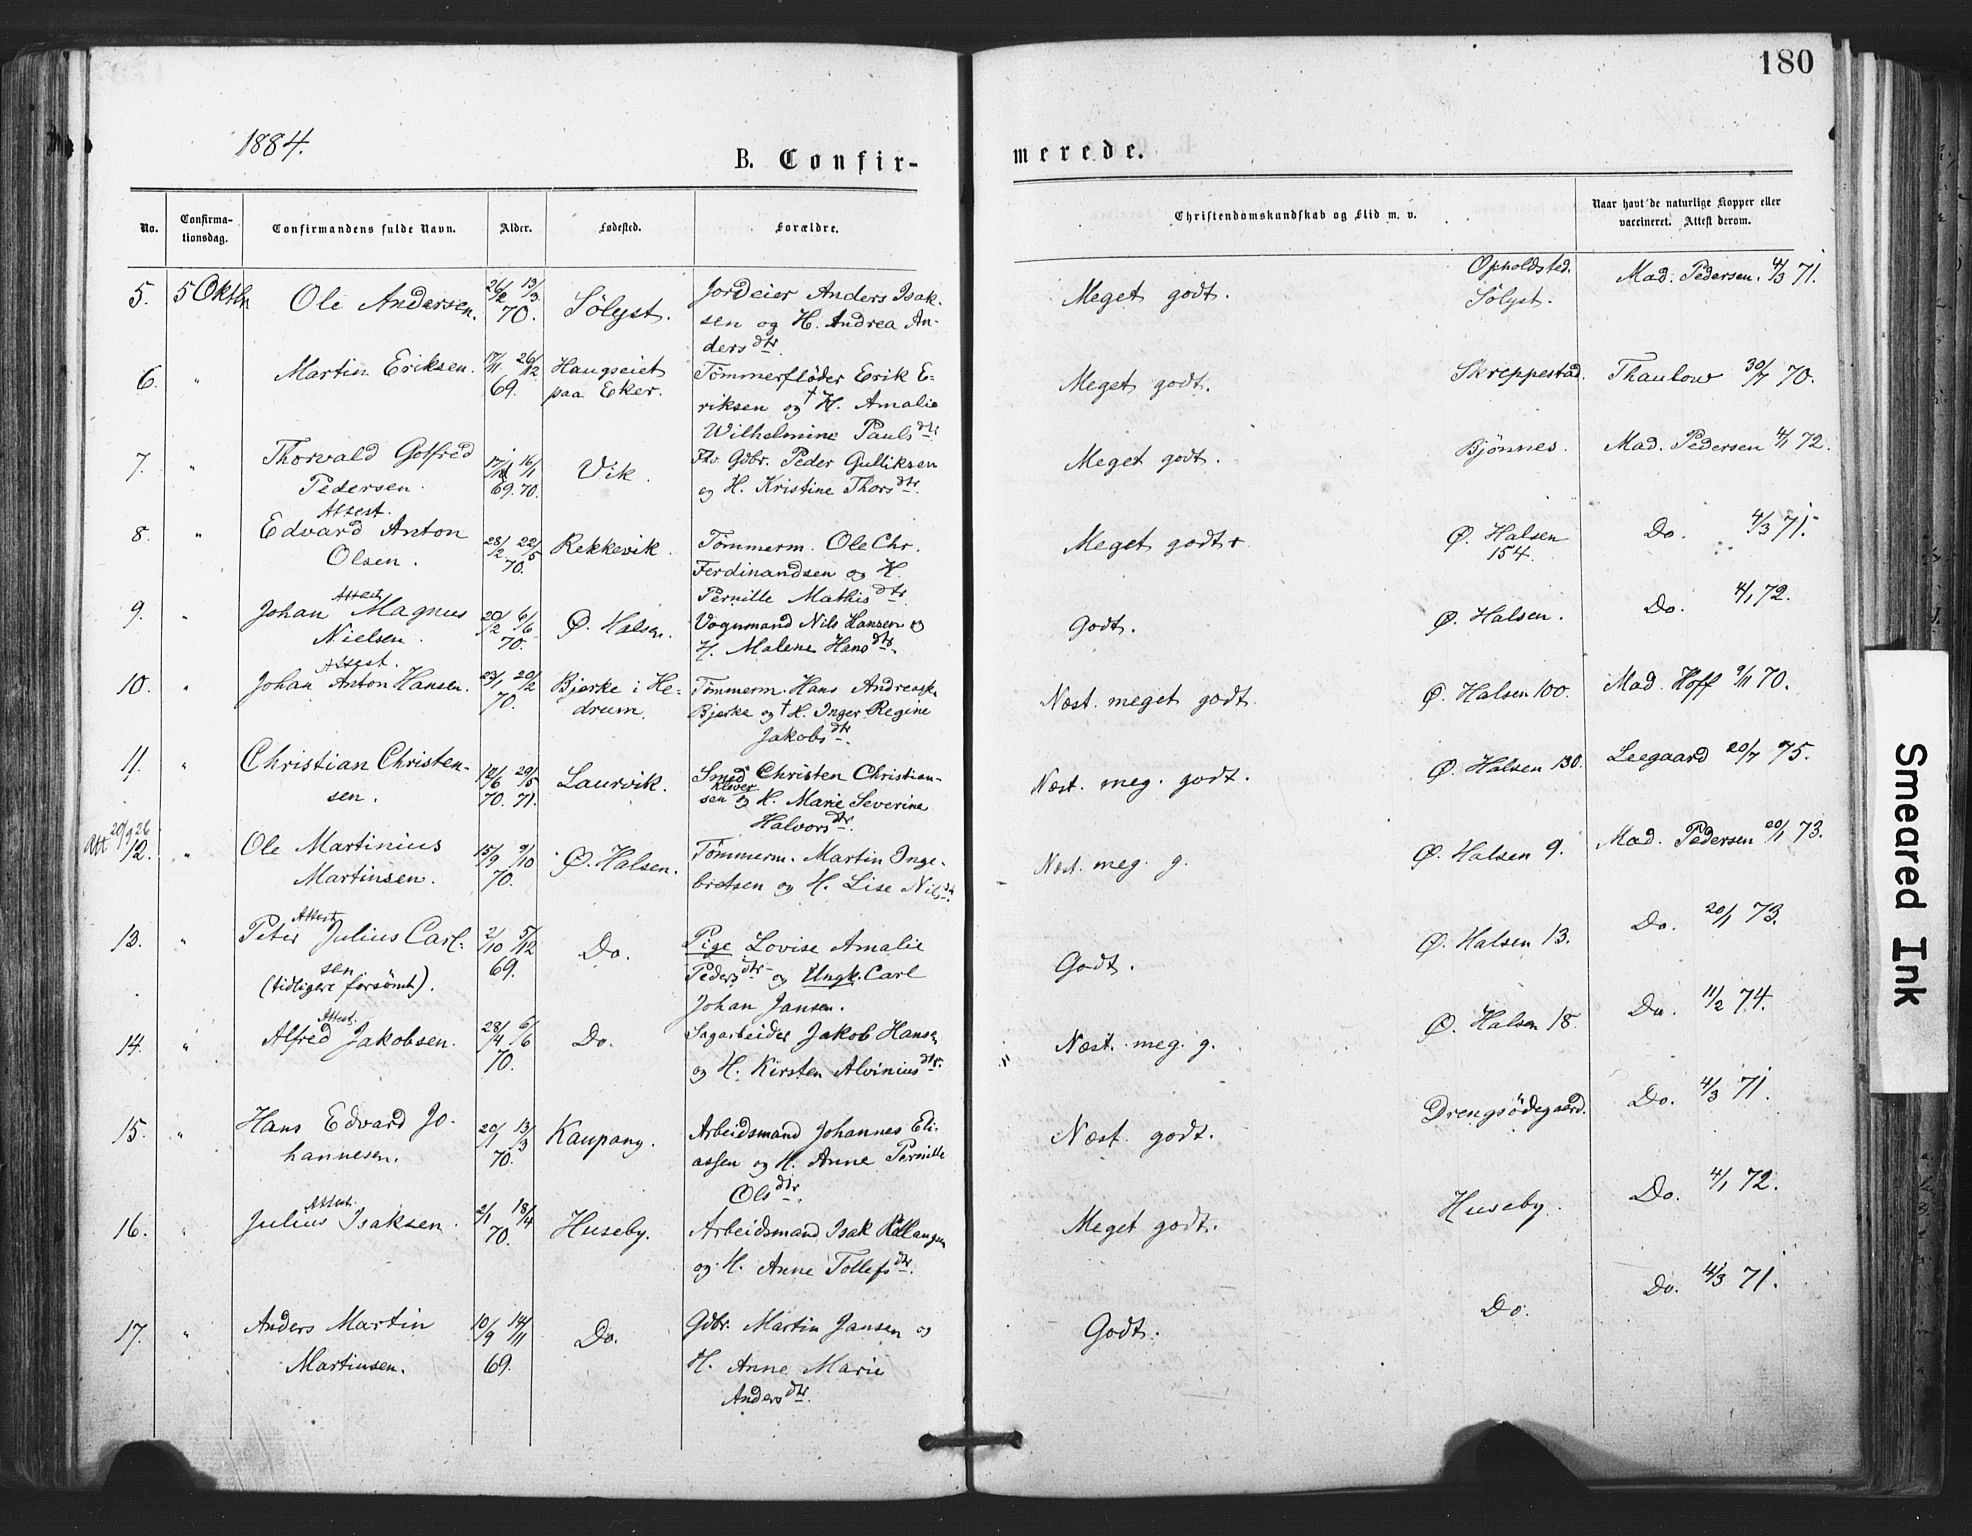 180
1884.
B. Confir-
merede.
No.
Confirma-
tionsdag.
Confirmandens fulde Navn.
Alder.
Fødested.
Forældre.
Christendomskundskab og Flid m. v.
Naar havt de naturlige Kopper eller
vaccineret. Attest derom.
5. 5 Oktbr. Ole Andersen. 26/2 13/3 70. Sölyst. Jordeier Anders Isak-
sen og H. Andrea An-
ders dtr.
Meget godt. Opholdsted. Sölyst. Mad. Pedersen. 4/3 71.
6. " Martin Eriksen. 17/11 26/12 69. Haugseiet
paa Eker. Tömmerflöder Erik E-
riksen og † H. Amalie
Wilhelmine Pauls dtr.
Meget godt. Skreppestad. Thaulow 30/7 70.
7. " Thorvald Gotfred
Pedersen. 69. 16/1 70. Vik. Gdbr. Peder Gulliksen
og H. Kristine Thors dtr.
Meget godt. Bjönnes. Mad. Pedersen 4/1 72.
8. " Attest.
Edvard Anton
Olsen. 28/2 22/5 70. Rekkevik. Tömmerm. Ole Chr.
Ferdinandsen og H.
Pernille Mathis dtr.
Meget godt. Ø. Halsen
154. Do. 4/3 71.
9. " Attest
Johan Magnus
Nielsen. 20/2 6/6 70. Ø. Halsen. Vognmand Nils Hansen og
H. Malene Hans dtr.
Godt. Ø. Halsen. Do. 4/1 72.
10. " Attest.
Johan Anton Hansen. 29/1 20/2 70. Bjerke i He-
drum. Tömmerm. Hans Andreas
Bjerke og † H. Inger Regine
Jakobs dtr.
Næst. meget godt Ø. Halsen 100. Mad. Hoff 9/11 70.
11. " Christian Christen-
sen. 12/6 70. 29/5 71. Laurvik. Smed Christen Christian-
sen Klever og H. Marie Severine
Halvors dtr.
Næst. meg. godt. Ø. Halsen 130. Leegaard 20/7 75.
Att 20/9 26
12. " Ole Martinius
Martinsen. 15/9 9/10 70. Ø. Halsen. Tömmerm. Martin Inge-
bretsen og H. Lise Nils dtr.
Næst. meg. g. Ø. Halsen 9. Mad. Pedersen 20/1 73.
13. " Attest
Peter Julius Carl-
sen
(tidligere forsömt). 2/10 5/12 69. Do. Pige Lovise Amalie
Peders dtr og Ungk. Carl
Johan Jansen.
Godt. Ø. Halsen 13. Do. 20/1 73.
14. " Attest.
Alfred Jakobsen. 28/4 6/6 70. Do. Sagarbeider Jakob Hansen
og H. Kirsten Alvinius dtr.
Næst. meg. g. Ø. Halsen 18. Do. 11/2 74.
15. " Hans Edvard Jo-
hannesen. 20/1 13/3 70. Kaupang. Arbeidsmand Johannes Eli-
assen og H. Anne Pernille
Ols dtr.
Næst. godt. Drengsödegaard. Do. 4/3 71.
16. " Attest.
Julius Isaksen. 2/1 18/4 70. Huseby. Arbeidsmand Isak
og H. Anne Tollefs dtr.
Meget godt. Huseby. Do. 4/1 72.
17. " Anders Martin
Martinsen. 10/9 14/11 69. Do. Gdbr. Martin Jansen og
H. Anne Marie
Anders dtr.
Godt. Do. Do. 4/3 71.
Smeared Ink